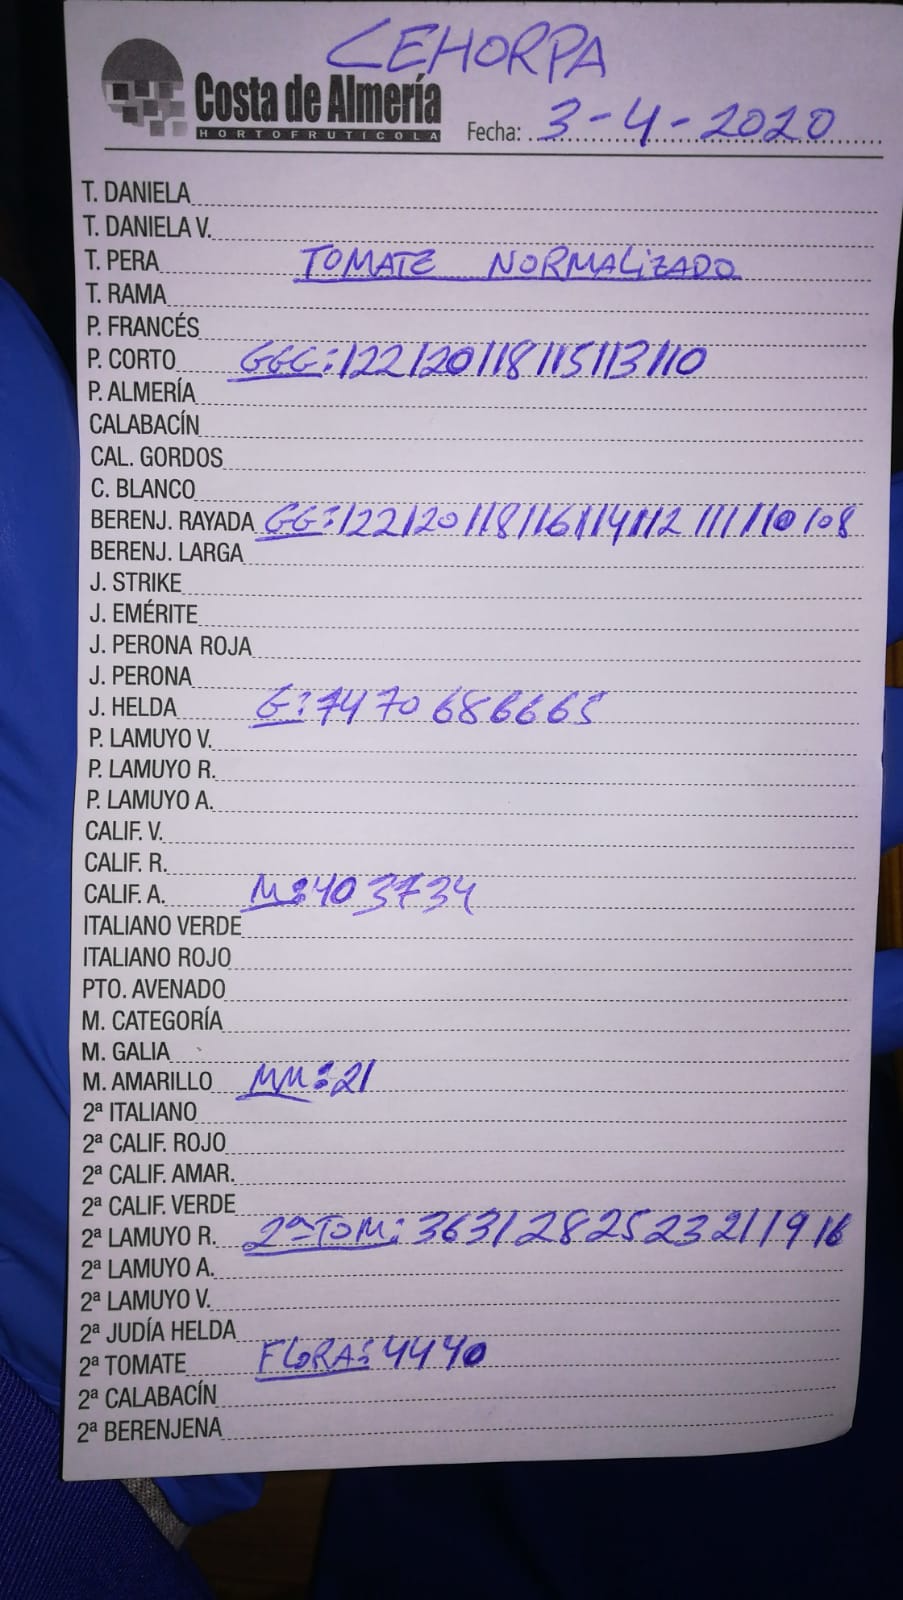 CEHORPA
Costa de Almería
HORTOFRUTICOLA
Fecha: 3-4-2020
T. DANIELA
T. DANIELA V.
T. PERA TOMATE NORMALIZADO
T. RAMA
P. FRANCÉS
P. CORTO GGG: 122 120 118 115 113 110
P. ALMERÍA
CALABACÍN
CAL. GORDOS
C. BLANCO
BERENJ. RAYADA GG: 122 120 118 116 114 112 111 110 108
BERENJ. LARGA
J. STRIKE
J. EMÉRITE
J. PERONA ROJA
J. PERONA
J. HELDA G: 74 70 68 66 65
P. LAMUYO V.
P. LAMUYO R.
P. LAMUYO A.
CALIF. V.
CALIF. R.
CALIF. A. M: 40 37 34
ITALIANO VERDE
ITALIANO ROJO
PTO. AVENADO
M. CATEGORÍA
M. GALIA
M. AMARILLO MM: 21
2ª ITALIANO
2ª CALIF. ROJO
2ª CALIF. AMAR.
2ª CALIF. VERDE
2ª LAMUYO R. 2ª TOM: 36 31 28 25 23 21 19 16
2ª LAMUYO A.
2ª LAMUYO V.
2ª JUDÍA HELDA
2ª TOMATE FLORA: 44 40
2ª CALABACÍN
2ª BERENJENA